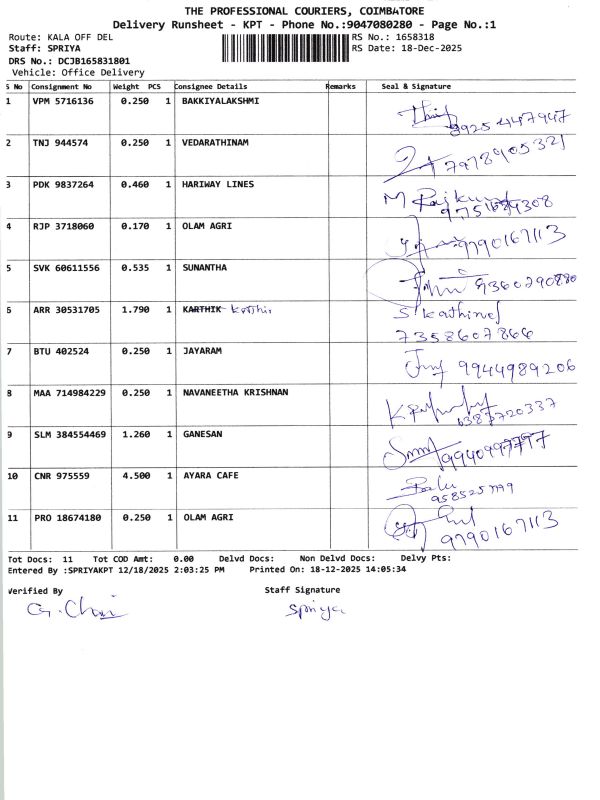 THE PROFESSIONAL COURIERS, COIMBATORE
Delivery Runsheet - KPT - Phone No.:9047080280 - Page No.:1
Route: KALA OFF DEL RS No.: 1658318
Staff: SPRIYA RS Date: 18-Dec-2025
DRS No.: DCJB165831801
Vehicle: Office Delivery
S No Consignment No Weight PCS Consignee Details Remarks Seal & Signature
1 VPM 5716136 0.250 1 BAKKIYALAKSHMI
8925447947
2 TNJ 944574 0.250 1 VEDARATHINAM
7978905321
3 PDK 9837264 0.460 1 HARIWAY LINES
M Rajkumar
4 RJP 3718060 0.170 1 OLAM AGRI
9790167113
5 SVK 60611556 0.535 1 SUNANTHA
9360290880
6 ARR 30531705 1.790 1 KARTHIK
S Kathirvel
7358607866
7 BTU 402524 0.250 1 JAYARAM
9944989206
8 MAA 714984229 0.250 1 NAVANEETHA KRISHNAN
9 SLM 384554469 1.260 1 GANESAN
10 CNR 975559 4.500 1 AYARA CAFE
Balu
11 PRO 18674180 0.250 1 OLAM AGRI
9790167113
Tot Docs: 11 Tot COD Amt: 0.00 Delvd Docs: Non Delvd Docs: Delvy Pts:
Entered By :SPRIYAKPT 12/18/2025 2:03:25 PM Printed On: 18-12-2025 14:05:34
Verified By Staff Signature
Spriya